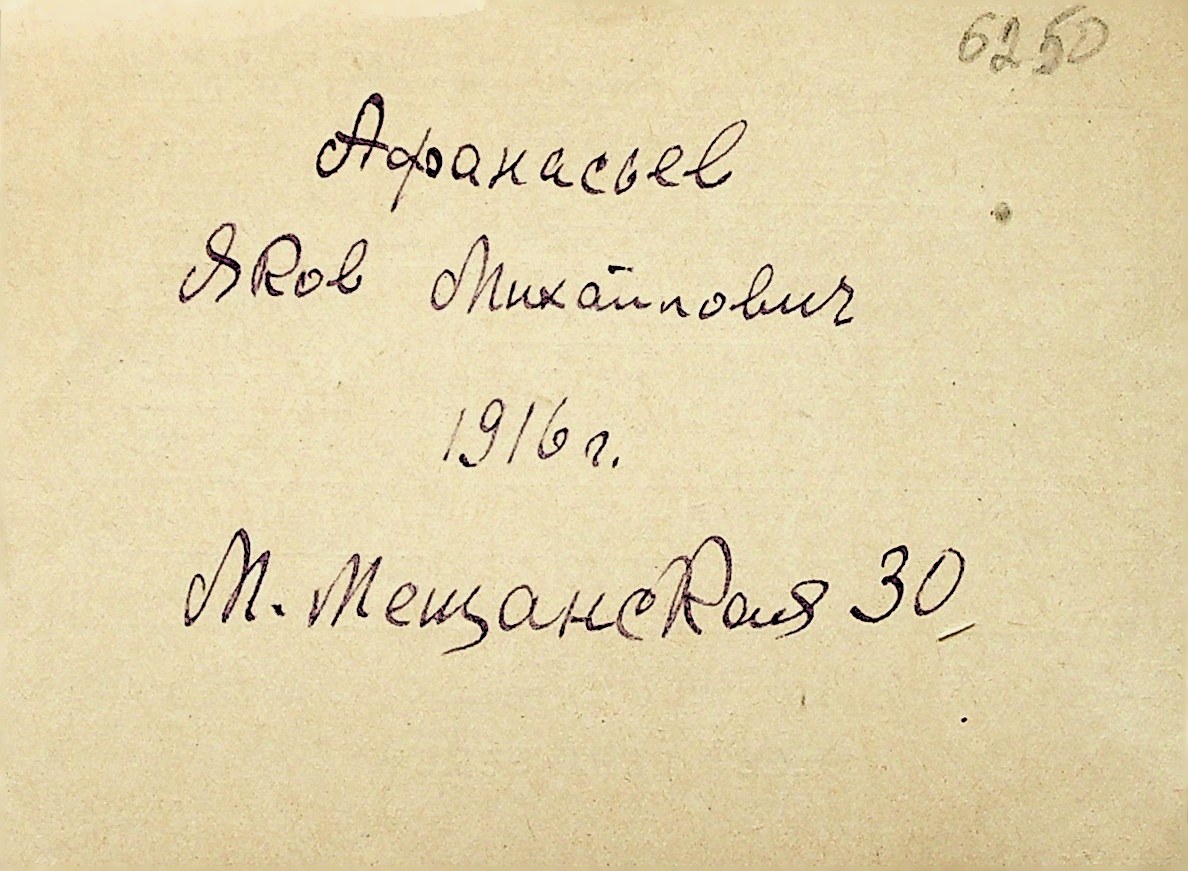 6250
Афанасьев
Яков Михайлович
1916 г.
М. Мещанская 30